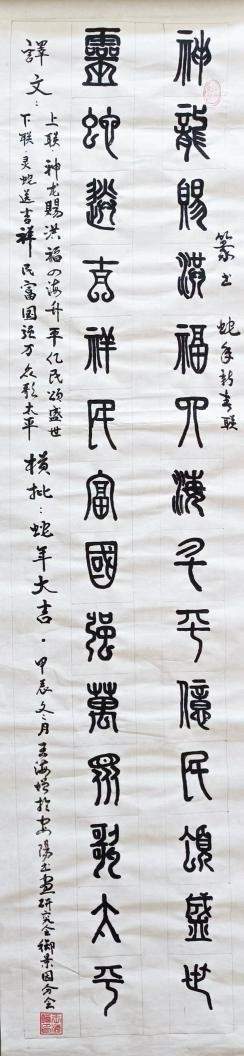 篆书 蛇年新春联
神龍賜洪福四海升平億民頌盛世
靈蛇送吉祥民富國強萬眾歌太平
譯文：
上联：神龙賜洪福四海升平亿民颂盛世
下联：灵蛇送吉祥民富国强万众歌太平
横批：蛇年大吉。甲辰冬月王海增於安陽书画研究会御景园分会